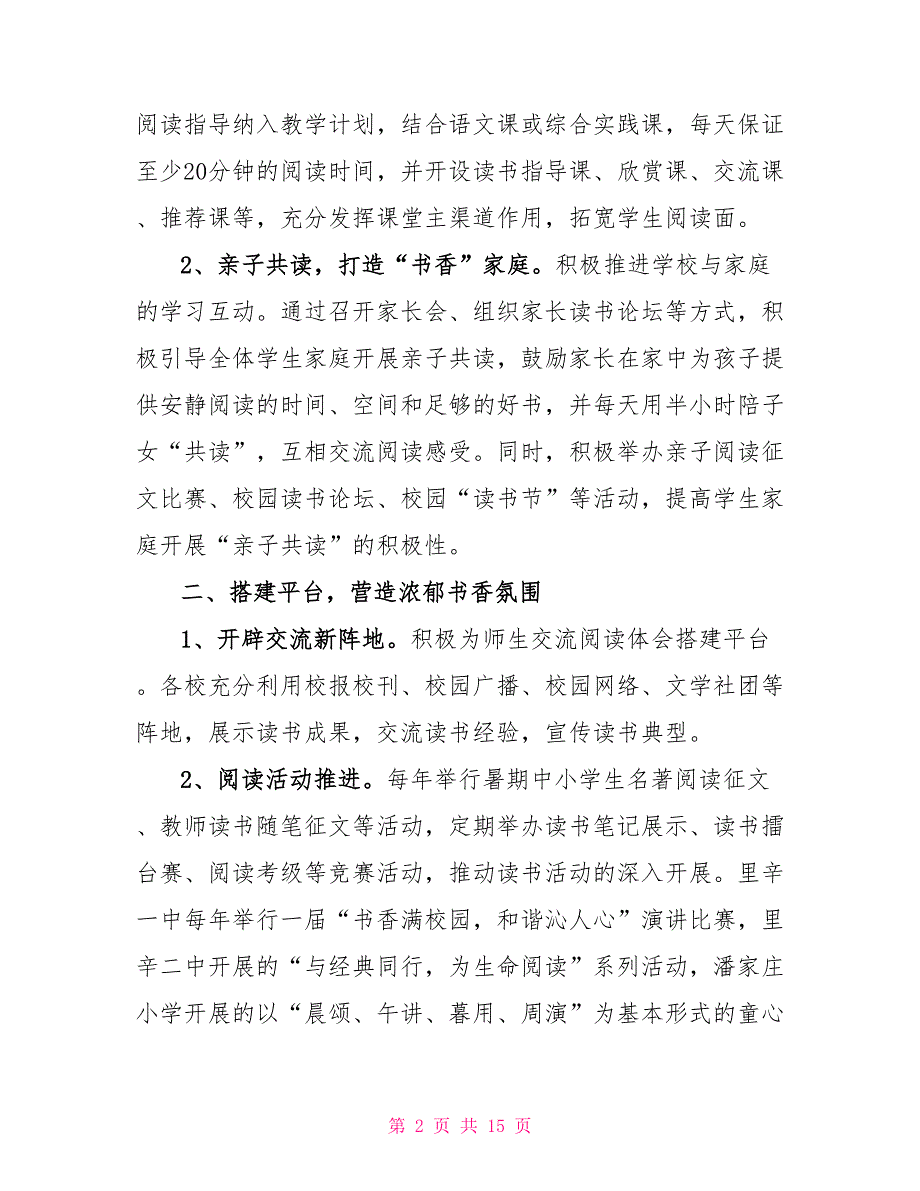 阅读指导纳入教学计划，结合语文课或综合实践课，每天保证
至少20分钟的阅读时间，并开设读书指导课、欣赏课、交流课
、推荐课等，充分发挥课堂主渠道作用，拓宽学生阅读面。
2、亲子共读，打造“书香”家庭。积极推进学校与家庭
的学习互动。通过召开家长会、组织家长读书论坛等方式，积
极引导全体学生家庭开展亲子共读，鼓励家长在家中为孩子提
供安静阅读的时间、空间和足够的好书，并每天用半小时陪子
女“共读”，互相交流阅读感受。同时，积极举办亲子阅读征
文比赛、校园读书论坛、校园“读书节”等活动，提高学生家
庭开展“亲子共读”的积极性。
二、搭建平台，营造浓郁书香氛围
1、开辟交流新阵地。积极为师生交流阅读体会搭建平台
。各校充分利用校报校刊、校园广播、校园网络、文学社团等
阵地，展示读书成果，交流读书经验，宣传读书典型。
2、阅读活动推进。每年举行暑期中小学生名著阅读征文
、教师读书随笔征文等活动，定期举办读书笔记展示、读书擂
台赛、阅读考级等竞赛活动，推动读书活动的深入开展。里辛
一中每年举行一届“书香满校园，和谐沁人心”演讲比赛，里
辛二中开展的“与经典同行，为生命阅读”系列活动，潘家庄
小学开展的以“晨颂、午讲、暮用、周演”为基本形式的童心
第 2 页 共 15 页